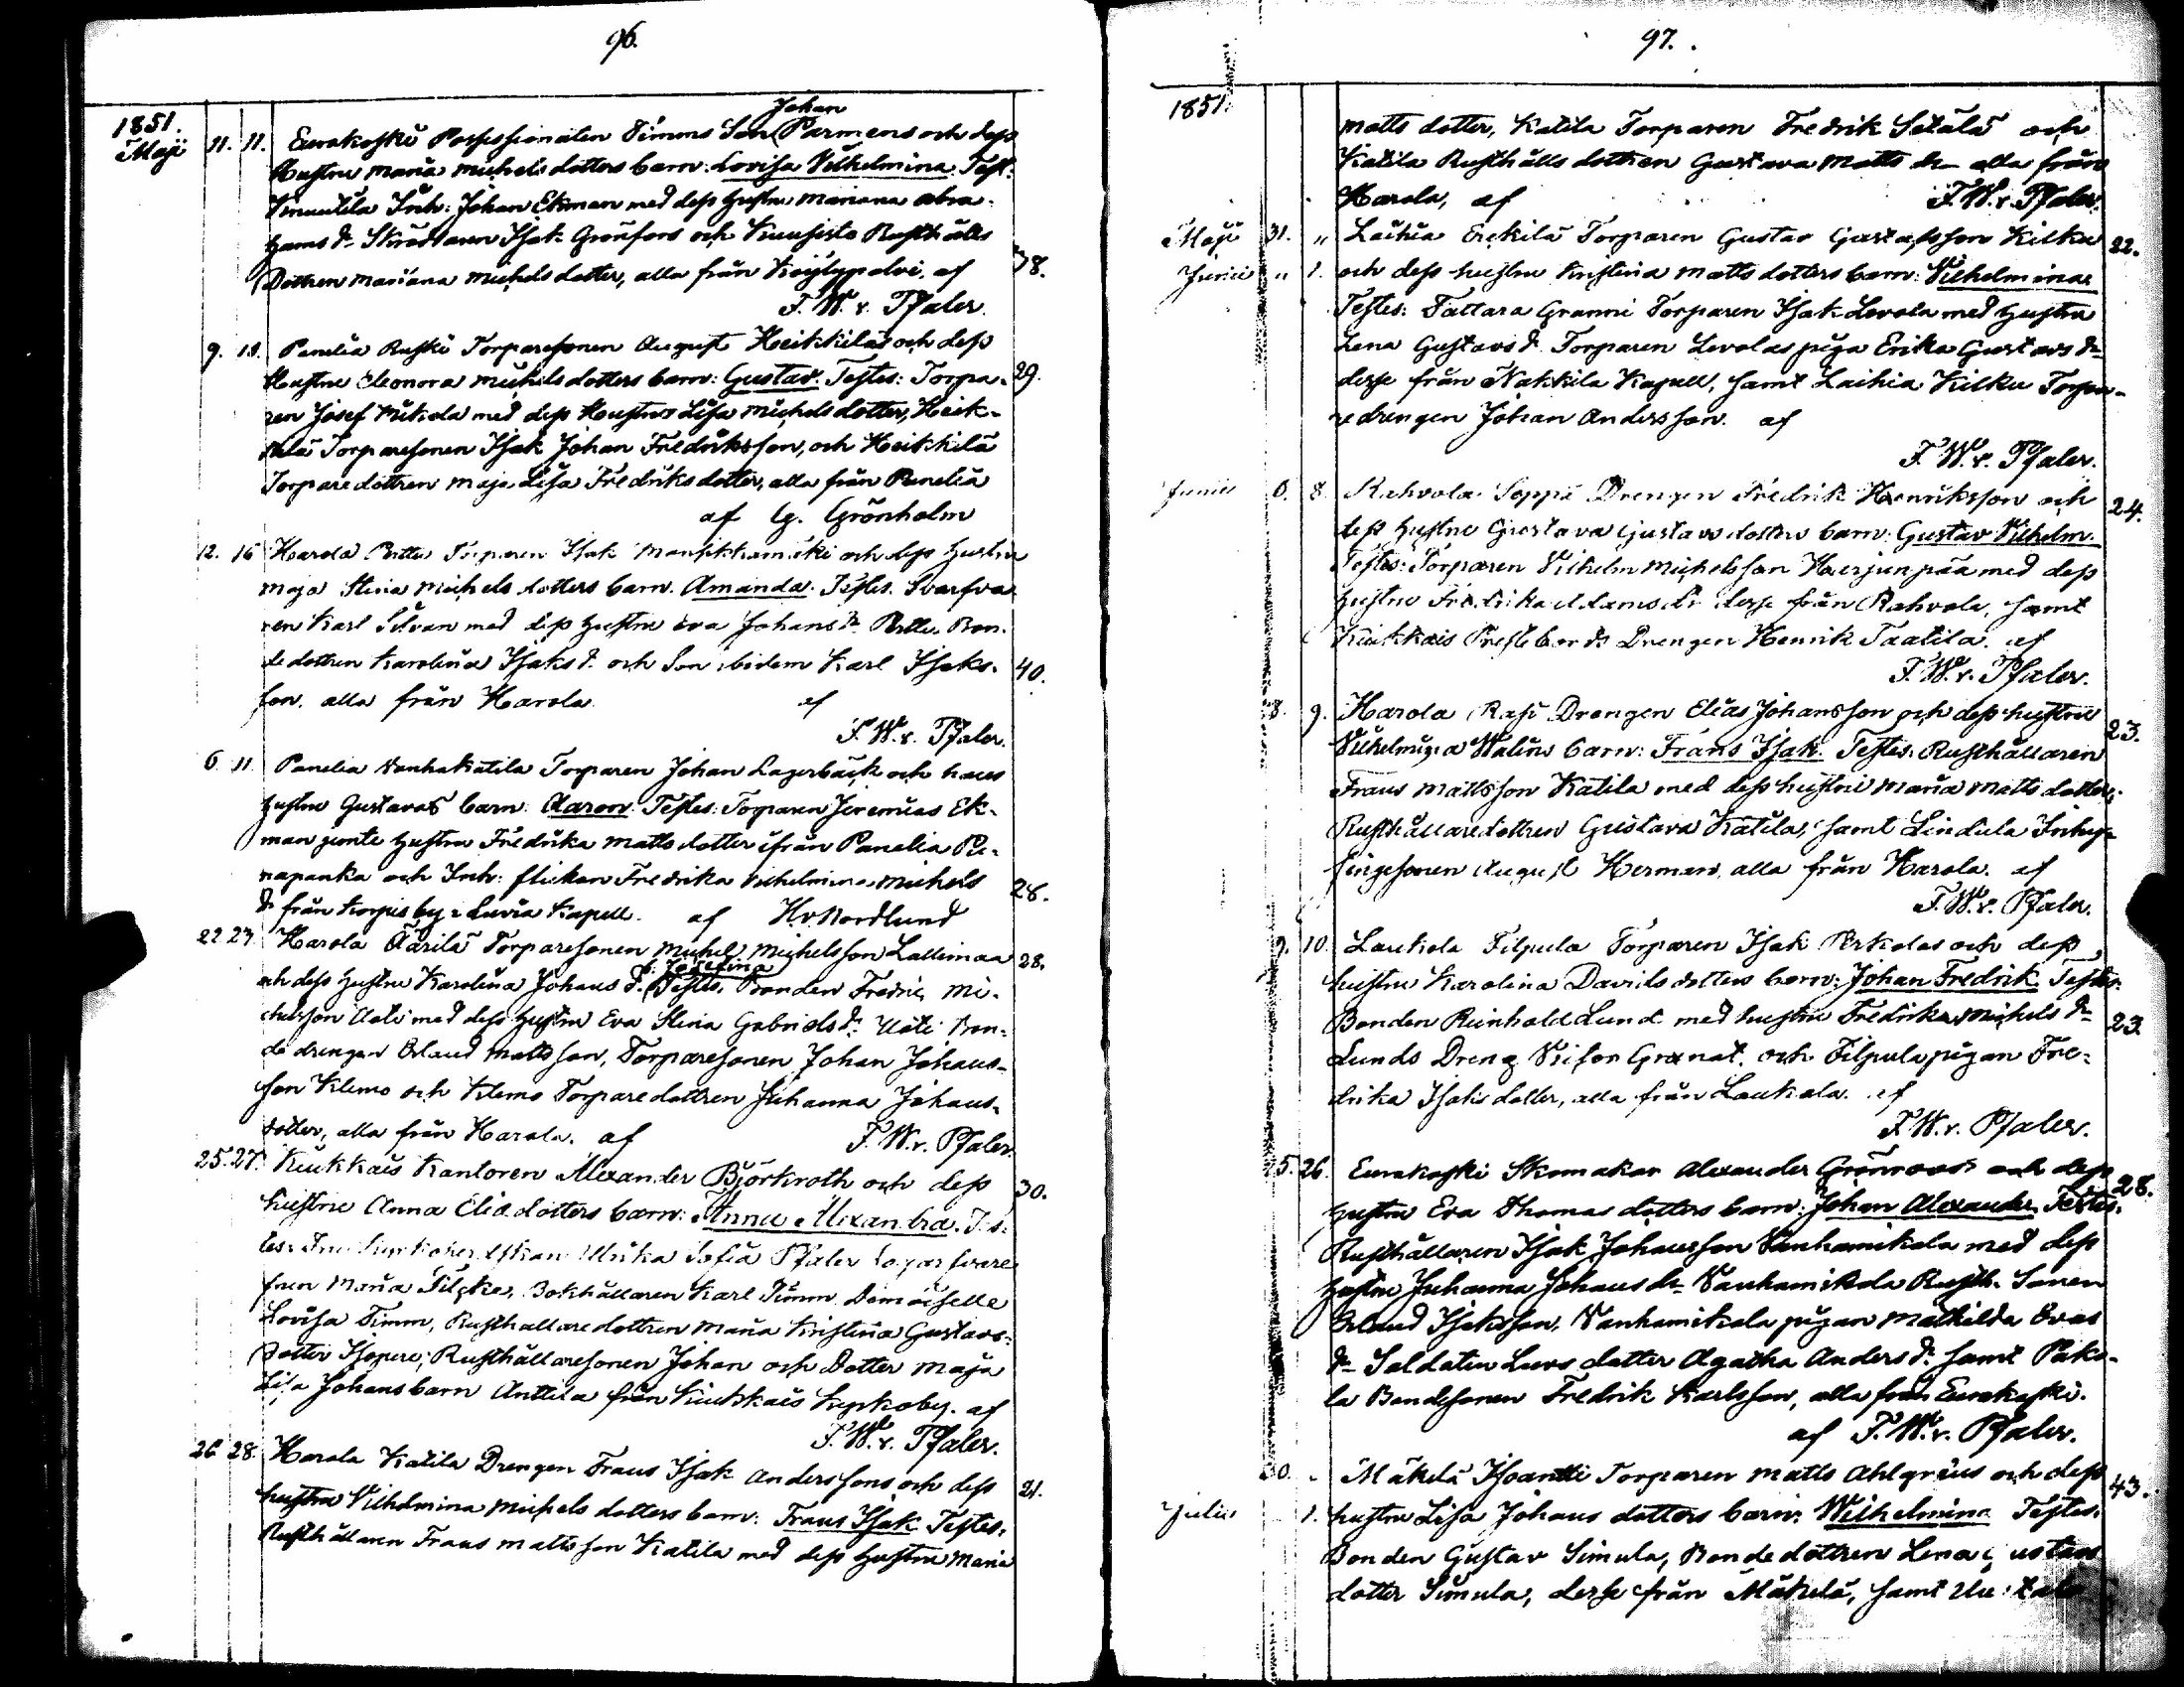 96.
1851.
Maji
Johan
11. 11. Eurakoski Possessionaten Timms Son Parmens och dess
Hustru Maria Michels dotters barn: Lovisa Vilhelmina. Test:
Inh: Johan Ekman med dess hustru Mariana Abra-
hams dr Skräddaren Isak Grönfors och Kuusisto Rusthålls
Dottren Mariana Michelsdotter, alla från Köyliypolvi. af
38.
F. W. v. Pfaler.
9. 11. Panelia Ruski Torparesonen August Heikkilä och dess
Hustru Eleonora Michels dotters barn: Gustav. Testes: Torpa- 29.
ren Josef Mikola med dess Hustru Lisa Michels dotter, Heik-
kilä Torparesonen Isak Johan Fredriksson, och Heikkilä
Torparedottren Maja Lisa Fredriksdotter, alla från Panelia
af G. Grönholm
12. 16 Harola Torparen Isak Mansikkamäki och dess Hustru
Maja Stina Michels dotters barn. Amanda. Testes. Svarfva-
ren Karl Silvan med dess hustru Eva Johans dr Bon-
dedottren Karolina Isaks dr och Son ibidem Karl Isaks- 40.
son. alla från Harola. af
F. W. v. Pfaler.
6. 11. Panelia Vanhakatila Torparen Johan Lagerbäck och hans
hustru Gustavas barn: Aaron. Testes: Torparen Jeremias Ek-
man jemte hustru Fredrika Matts dotter ifrån Panelia
och Inh: flickan Fredrika Vilhelmina Michels 28.
dr från Korpis by i Luvia Kapell. af H. Nordlund
22. 27. Harola Äärilä Torparesonen Michel Michelsson Lallimaa 28.
b: Josefina
och dess hustru Karolina Johans dr. Testes. Bonden Fredric Mi-
chelsson Uoti med dess hustru Eva Stina Gabriels dr Uoti Bon-
dedrengen Erland Mattsson, Torparesonen Johan Johans-
son Klemo och Klemo Torparedottren Johanna Johans-
dotter, alla från Harola. af F. W. v. Pfaler.
25. 27. Kiukkais Kantoren Alexander Björkroth och dess 30.
hustru Anna Elia dotters barn: Anna Alexandra. Tes-
tes: Ulrika Sofia Pfaler
frun Maria Bokhållaren Karl Timm Demoiselle
Lovisa Timm, Rusthållaredottren Maria Kristina Gustavs-
dotter Isopere, Rusthållaresonen Johan och Dotter Maja
Lisa Johansbarn Anttila från Kiukkais Kyrkoby. af
F. W. v. Pfaler.
26 28. Harola Katila Drengen Frans Isak Anderssons och dess 21.
hustru Vilhelmina Michels dotters barn: Frans Isak Testes.
Rusthållaren Frans Mattsson Katila med dess hustru Maria
97.
1851.
Matts dotter, Katila Torparen Fredrik Setälä och
Katila Rusthålls dottren Gustava Matts dr alla från
Harola, af F. W. v. Pfaler.
Maji 31. " Laihia Torparen Gustav Gustafsson Kilku 22.
Junii " 1. och dess hustru Kristina Matts dotters barn: Vilhelmina
Testes: Tattara Granni Torparen Isak Levola med hustru
Lena Gustavs dr. Torparen Levolas piga Erika Gustavs dr
desse från Nakkila Kapell, samt Laihia Kilku Torpa-
redrengen Johan Andersson. af
F. W. v. Pfaler.
Junii 6. 8. Rahvola Seppi Drengen Fredrik Henriksson och 24.
dess hustru Gustava Gustavs dotters barn: Gustav Vilhelm.
Testes: Torparen Vilhelm Michelsson Harjunpää med dess
hustru Fredrika Adams dr desse från Rahvola, samt
Kiukkais Drengen Henrik Taatila. af
F. W. v. Pfaler.
8. 9. Harola Rasi Drengen Elias Johansson och dess hustru 23.
Vilhelmina Walins barn: Frans Isak. Testes. Rusthållaren
Frans Mattsson Katila med dess hustru Maria Matts dotter,
Rusthållaredottren Gustava Katila, samt Lindula Inhys-
singesonen August Herman, alla från Harola. af
F. W. v. Pfaler.
9. 10. Laukola Filpula Torparen Isak Perkolas och dess
hustru Karolina Davids dotters barn: Johan Fredrik. Testes.
Bonden Reinhold Lund med hustru Fredrika Michels dr 23.
Lunds Dreng Granat. och Filpula pigan Fre-
drika Isaks dotter, alla från Laukola. af
F. W. v. Pfaler.
5. 26. Eurakoski Skomakar Alexander Grönroos och dess 28.
hustru Eva Thomas dotters barn: Johan Alexander Testes.
Rusthållaren Isak Johansson Vanhamikola med dess
hustru Johanna Johans dr Vanhamikola Rusth. Sonen
Erland Isaksson, Vanhamikola pigan Mathilda Evas
dr Soldaten Luvs dotter Agatha Anders dr samt Pake-
la Bondesonen Fredrik Karlsson, alla från Eurakoski.
af F. W. v. Pfaler.
30. - Mäkelä Isoantti Torparen Matts Ahlgrens och dess 43.
Julii 1. hustru Lisa Johans dotters barn: Wilhelmina Testes.
Bonden Gustav Simula, Bondedottren Lena Gustavs
dotter Simula, desse från Mäkelä, samt